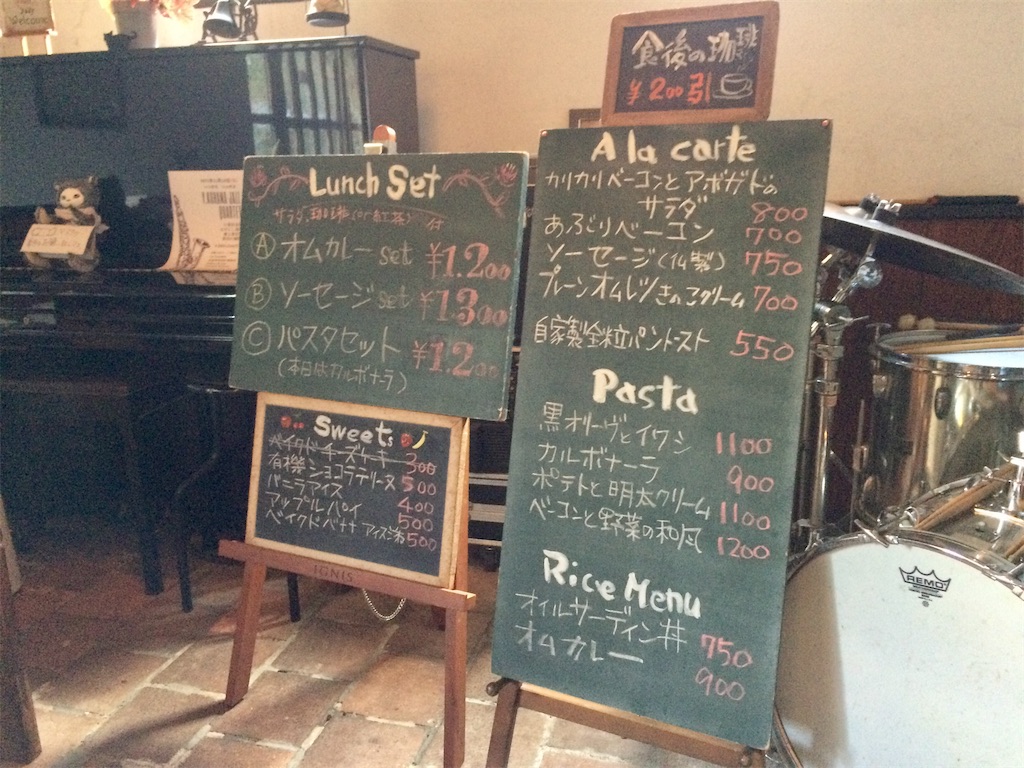 Welcome
食後の珈琲
¥200引
Lunch Set
サラダ、珈琲(or紅茶) 付
Ⓐ オムカレー set ¥1.200
Ⓑ ソーセージ set ¥1.300
Ⓒ パスタセット ¥1.200
(本日はカルボナーラ)
Sweets
ベイクドチーズケーキ 300
有機ショコラテリーヌ 500
バニラアイス 400
アップルパイ 500
ベイクドバナナ アイス添 500
IGNIS
A la carte
カリカリベーコンとアボガドの
サラダ 800
あぶりベーコン 700
ソーセージ(仏製) 750
プレーンオムレツきのこクリーム 700
自家製全粒パントースト 550
Pasta
黒オリーヴとイワシ 1100
カルボナーラ 900
ポテトと明太クリーム 1100
ベーコンと野菜の和風 1200
Rice Menu
オイルサーディン丼 750
オムカレー 900
REMO